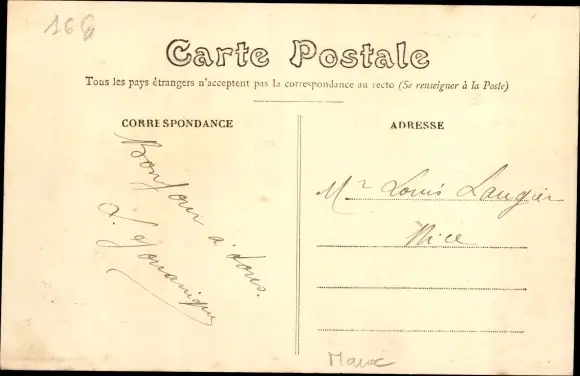 Carte Postale
Tous les pays étrangers n'acceptent pas la correspondance au recto (Se renseigner à la Poste)
CORRESPONDANCE
Bonjour à tous.
ADRESSE
Mr Louis Laugier
Nice
Maroc